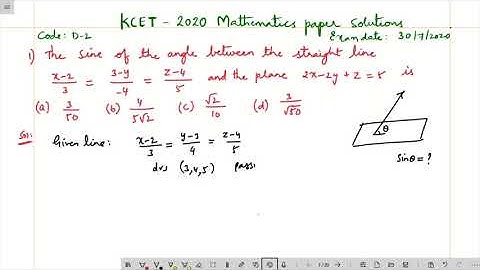 KCET - 2020 Mathematics paper solutions
Code: D-2
Exam date: 30/7/2020
1) The sine of the angle between the straight line
x-2/3 = 3-y/-4 = z-4/5 and the plane 2x-2y+z=5 is
(a) 3/50 (b) 4/5√2 (c) √2/10 (d) 3/√50
Sol:
Given line: x-2/3 = y-3/4 = z-4/5
drs (3,4,5) passi
θ
sinθ = ?
1/20